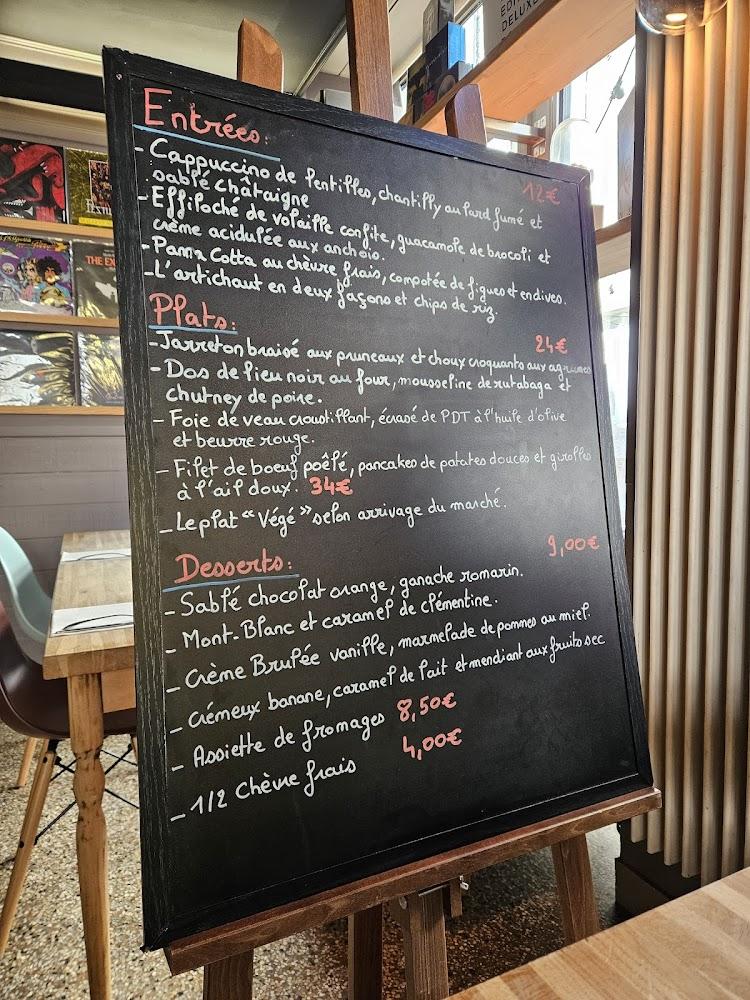 EDI
DELUXE
Entrées:
12€
- Cappuccino de lentilles, chantilly au lard fumé et
sablé châtaigne
- Effiloché de volaille confite, guacamole de brocoli et
crème acidulée aux anchois.
- Panna Cotta au chèvre frais, compotée de figues et endives.
- L'artichaut en deux façons et chips de riz.
Plats:
24€
- Jarreton braisé aux pruneaux et choux croquants aux agrumes
- Dos de lieu noir au four, mousseline de rutabaga et
chutney de poire.
- Foie de veau croustillant, écrasé de PDT à l'huile d'olive
et beurre rouge.
- Filet de boeuf poêlé, pancakes de patates douces et girolles
à l'ail doux. 34€
- Le plat "Végé" selon arrivage du marché.
Desserts:
9,00€
- Sablé chocolat orange, ganache romarin.
- Mont-Blanc et caramel de clémentine.
- Crème Brulée vanille, marmelade de pommes au miel.
- Crémeux banane, caramel de lait et mendiant aux fruits sec
- Assiette de fromages 8,50€
- 1/2 Chèvre frais 4,00€